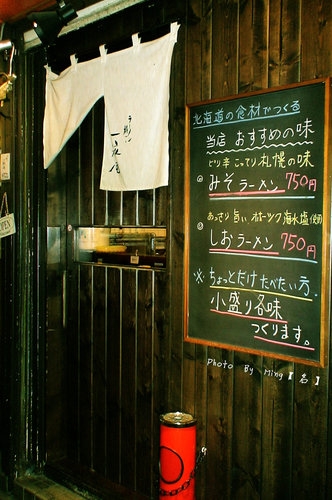 北海道の食材でつくる
当店 おすすめの味
ピリ辛 こってり 札幌の味
◎ みそラーメン 750円
あっさり 旨い オホーツク海水塩使用
◎ しおラーメン 750円
※ ちょっとだけ たべたい方、
小盛り各味
つくります。
Photo By Ming【名】
OPEN